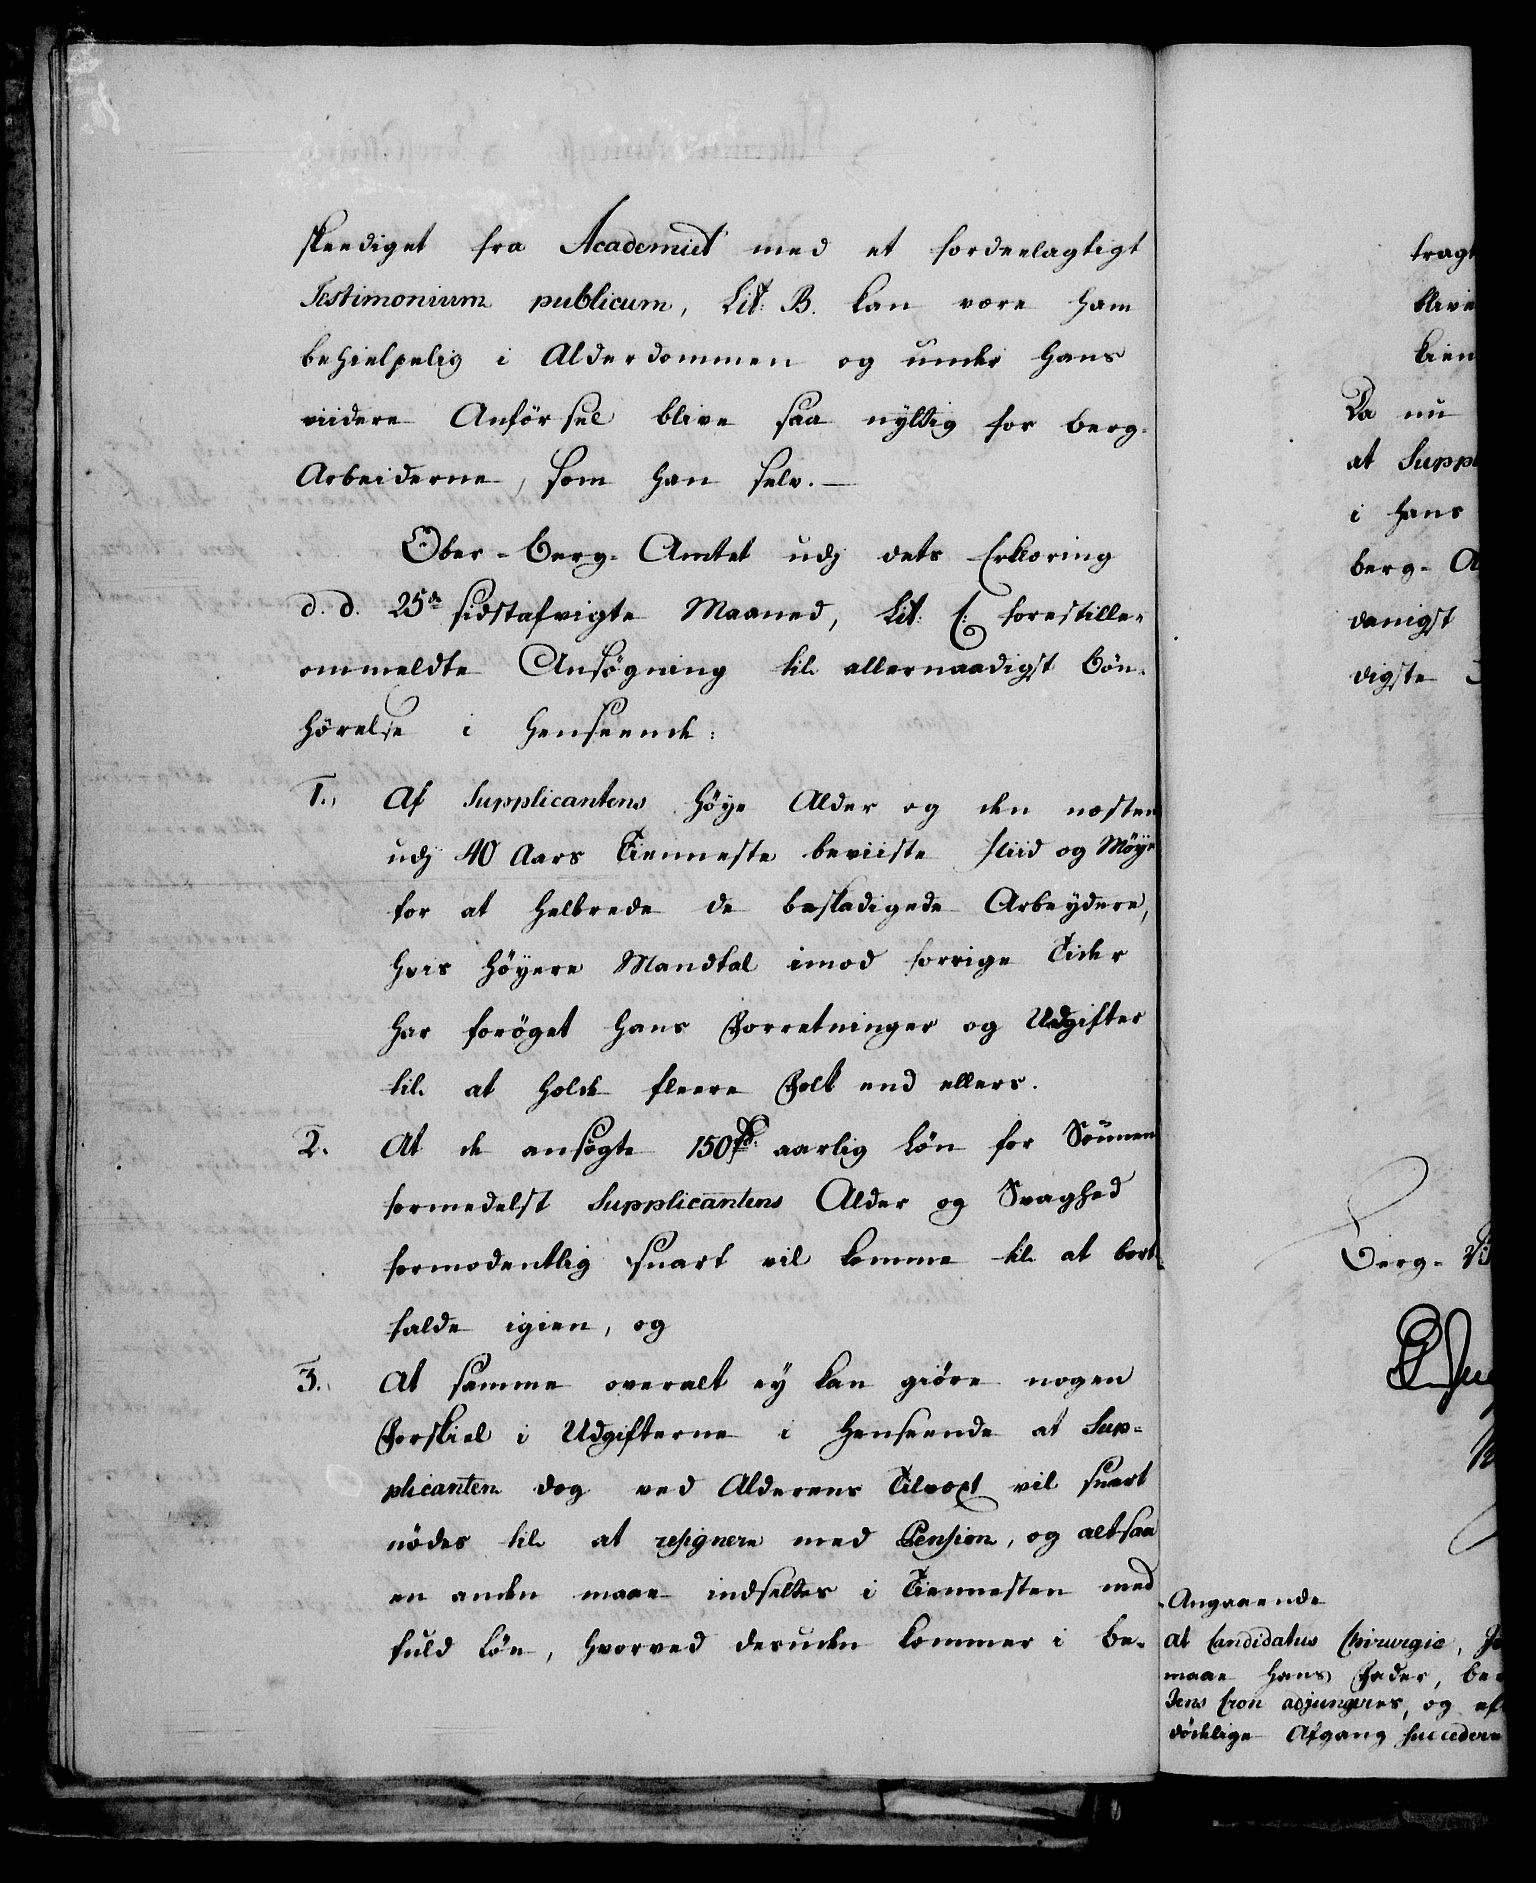 skeediget fra Academiet med et fordeelagtigt
Testimonium publicum, Lit: B. kan være ham
behielpelig i Alderdommen og under hans
viidere Anförsel blive saa nyttig for Berg-
Arbeiderne, som han selv.—
Ober-Berg-Amtet udj dets Erklæring
d. d. 25de sidstafvigte Maaned, Lit: C: forestiller
ommeldte Ansøgning til allernaadigst Bön-
hörelse i Henseende:
1., Af Supplicantens höye Alder og den næsten
udj 40 Aars Tienneste beviiste Fliid og Möye
for at helbrede de beskadigede Arbeydere,
hvis höyere Mandtal imod forrige Tider
har foröget hans Forretninger og Udgifter
til at holde fleere Folk end ellers.
2. At de ansøgte 150 rd. aarlig Lön for Sönnen
formedelst Supplicantens Alder og Svaghed
formodentlig snart vil komme til at bort-
falde igien, og
3., At samme overalt ey kan giöre nogen
Forskiel i Udgifterne i Henseende at Sup-
plicanten dog ved Alderens Tilvoxt vil snart
nödes til at resignere med Pension, og altsaa
en anden maae indsettes i Tiennesten med
fuld Lön, hvorved desuden kommer i Be-
tragt
blive
kien
Da nu
at Suppl
i hans
Berg-A
danigst
digste
Berg-
Angaaende
at Candidatus Chirurgiæ,
maae hans Fader, Ber
dens Cron adjungeres, og ef
dödelige Afgang succedere